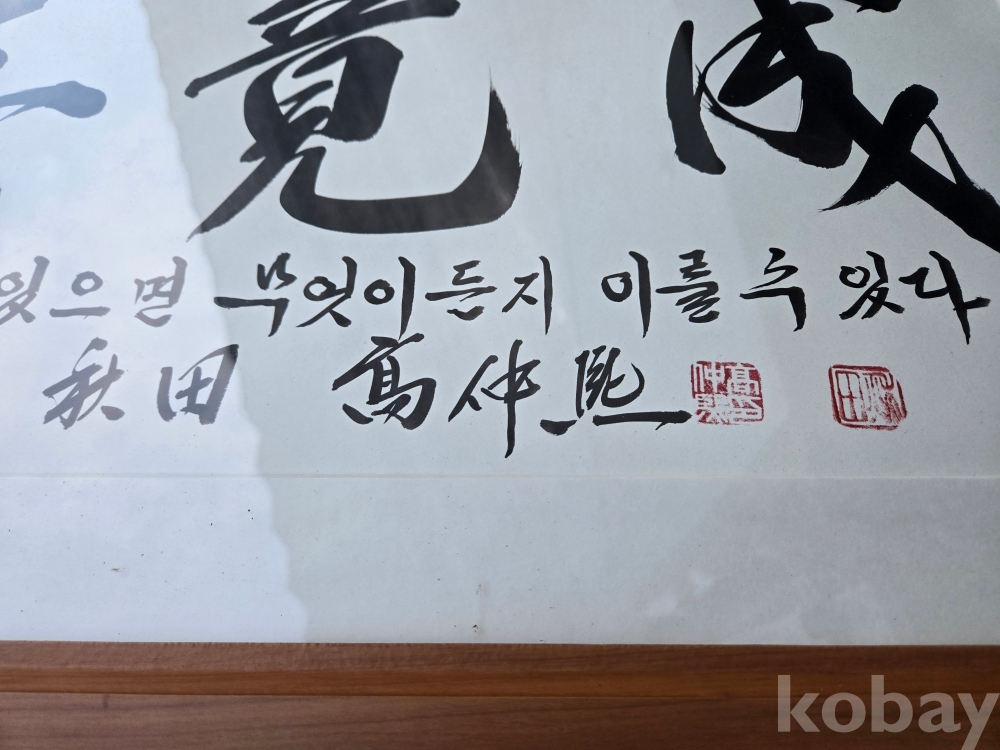 竟 成
있으면 무엇이든지 이를 수 있다
秋田 髙仲熙
kobay